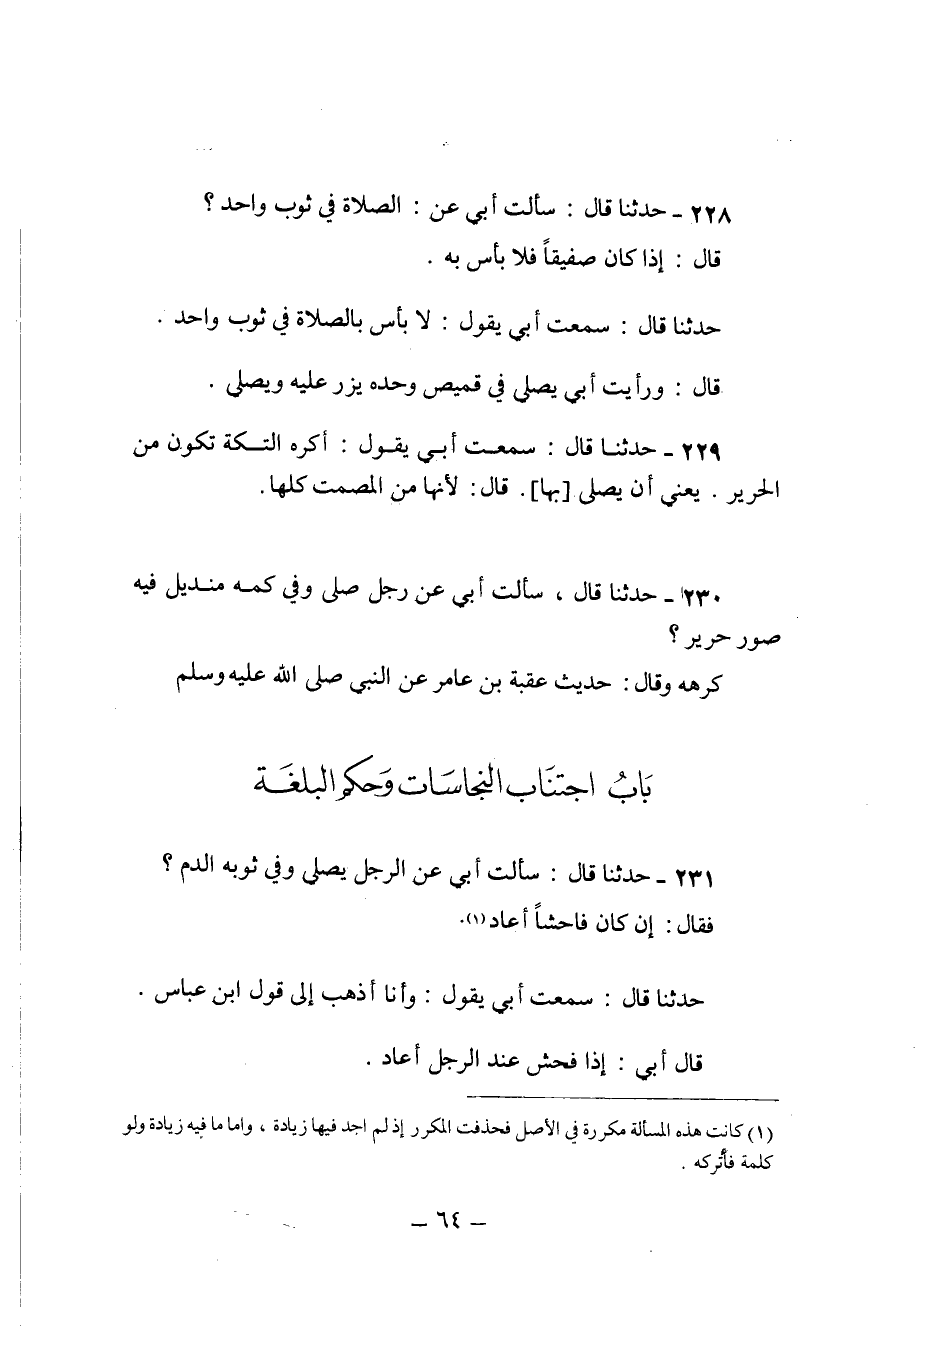 ٢٢٨ ـ حدثنا قال : سألت أبي عن : الصلاة في ثوب واحد ؟
قال : إذا كان صفيقاً فلا بأس به .
حدثنا قال : سمعت أبي يقول : لا بأس بالصلاة في ثوب واحد .
قال : ورأيت أبي يصلي في قميص وحده يزر عليه ويصلي .
٢٢٩ ـ حدثنا قال : سمعت أبي يقول : أكره التكة تكون من
الحرير . يعني أن يصلى [بها]. قال: لأنها من المصمت كلها.
٢٣٠ ـ حدثنا قال ، سألت أبي عن رجل صلى وفي كمه منديل فيه
صور حرير ؟
كرهه وقال: حديث عقبة بن عامر عن النبي صلى الله عليه وسلم
بَابُ اجتنَاب النجاسَات وَحكم البلغَة
٢٣١ ـ حدثنا قال : سألت أبي عن الرجل يصلي وفي ثوبه الدم ؟
فقال: إن كان فاحشاً أعاد(١).
حدثنا قال : سمعت أبي يقول : وأنا أذهب إلى قول ابن عباس .
قال أبي : إذا فحش عند الرجل أعاد .
(١) كانت هذه المسألة مكررة في الأصل فحذفت المكرر إذ لم اجد فيها زيادة ، واما ما فيه زيادة ولو
كلمة فأتركه .
– ٦٤ –